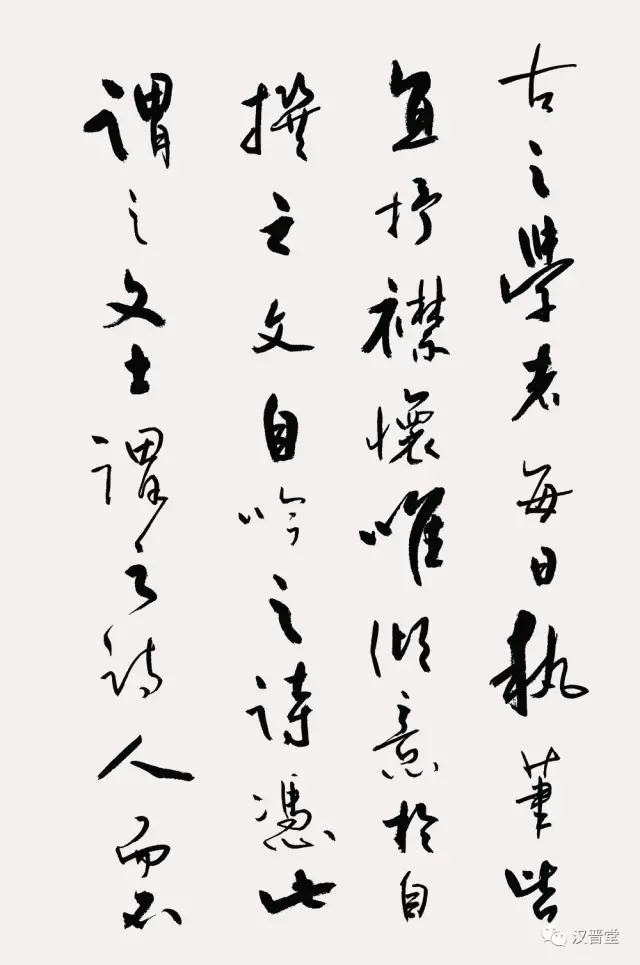 古之學者每日執筆皆
直抒襟懷唯傾意於自
撰之文自吟之詩憑此
謂之文士謂之詩人而不
汉晋堂